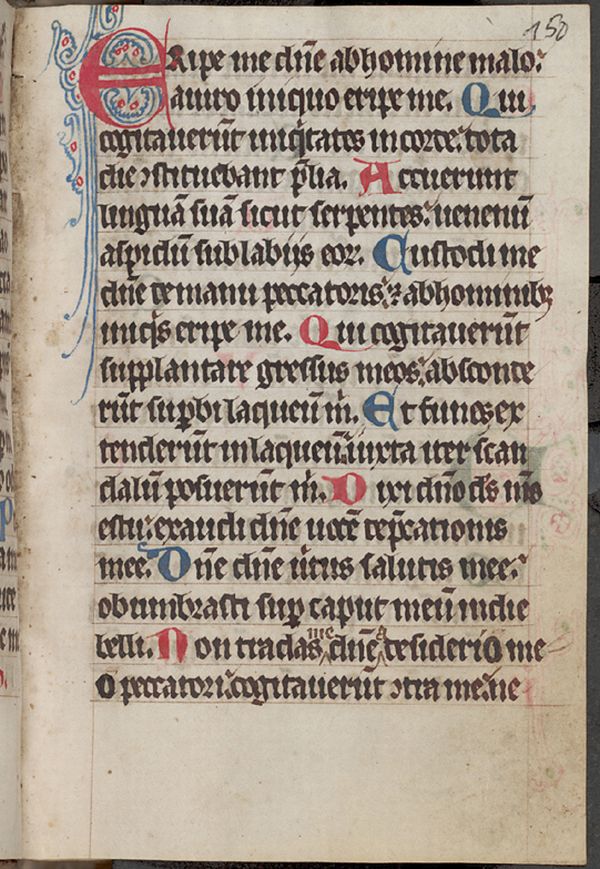 150
Eripe me dn̄e ab homine malo:
a uiro iniquo eripe me. Qui
cogitauerūt iniq̇tates in corde: tota
die ꝯstituebant p̄lia. Acuerunt
linguā suā sicut serpentes: uenenū
aspidū sub labijs eoꝝ. Custodi me
dn̄e de manu peccatoris: ⁊ ab hominibꝫ
iniq̇s eripe me. Qui cogitauerūt
supplantare gressus meos: absconde
rūt suꝑbi laqueū m̄. Et funes ex
tenderūt in laqueū: iuxta iter scan
dalū posuerūt m̄. Dixi dn̄o ds̄ ms̄
es tu: exaudi dn̄e uocē dep̄cationis
mee. Dn̄e dn̄e uirtus salutis mee:
obumbrasti suꝑ caput meū in die
belli. Non tradas me dn̄e a desiderio me
o peccatori: cogitauerūt ꝯtra me: ne